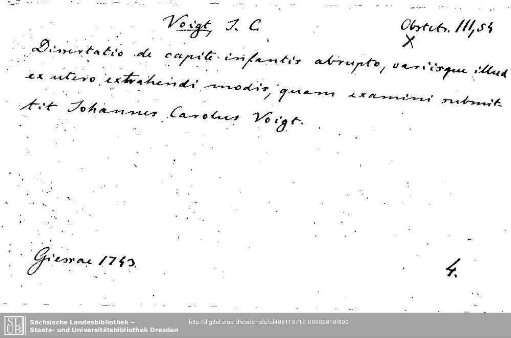 Voigt, J. C.
Obstetr. III, 54
X
Dissertatio de capite infantis abrupto, variisque illud
ex utero extrahendi modis, quam examini submit-
tit Johannes Carolus Voigt.
Giessae 1743.
4.
SLUB
Sächsische Landesbibliothek –
Staats- und Universitätsbibliothek Dresden